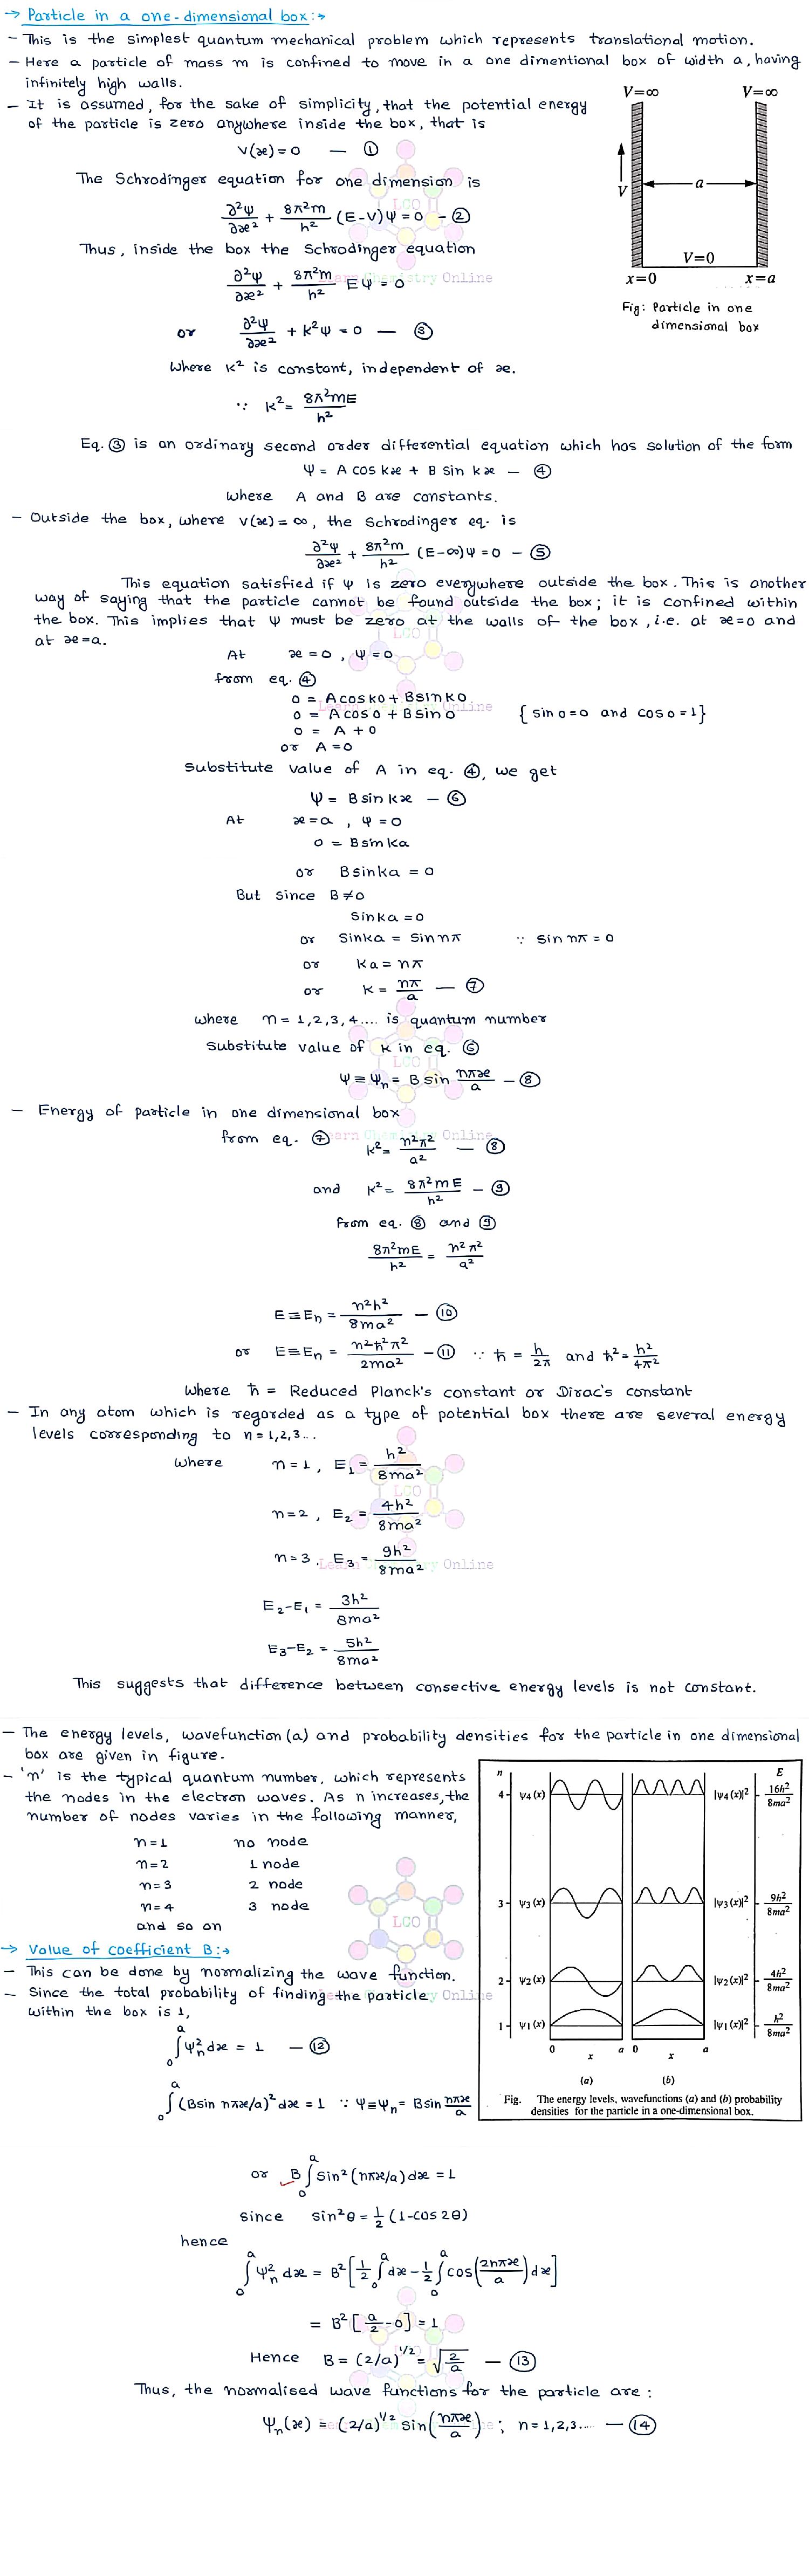 → Particle in a one-dimensional box:→
- This is the simplest quantum mechanical problem which represents translational motion.
- Here a particle of mass m is confined to move in a one dimentional box of width a, having
infinitely high walls.
- It is assumed, for the sake of simplicity, that the potential energy
of the particle is zero anywhere inside the box, that is
V(x) = 0 — ①
V=∞ V=∞
V
a
V=0
x=0 x=a
Fig: Particle in one
dimensional box
The Schrodinger equation for one dimension is
∂²Ψ/∂x² + 8π²m/h² (E-V)Ψ = 0 - ②
Thus, inside the box the Schrodinger equation
∂²Ψ/∂x² + 8π²m/h² EΨ = 0
or ∂²Ψ/∂x² + k²Ψ = 0 — ③
Where k² is constant, independent of x.
∵ k² = 8π²mE/h²
Eq. ③ is an ordinary second order differential equation which has solution of the form
Ψ = A cos kx + B sin kx — ④
where A and B are constants.
- Outside the box, where V(x) = ∞, the Schrodinger eq. is
∂²Ψ/∂x² + 8π²m/h² (E-∞)Ψ = 0 - ⑤
This equation satisfied if Ψ is zero everywhere outside the box. This is another
way of saying that the particle cannot be found outside the box; it is confined within
the box. This implies that Ψ must be zero at the walls of the box, i.e. at x=0 and
at x=a.
At x=0, Ψ=0
from eq. ④
0 = A cos k0 + B sin k0
0 = A cos 0 + B sin 0 { sin 0 = 0 and cos 0 = 1}
0 = A + 0
or A = 0
Substitute value of A in eq. ④, we get
Ψ = B sin kx — ⑥
At x=a, Ψ=0
0 = B sin ka
or B sin ka = 0
But since B ≠ 0
Sin ka = 0
or Sin ka = Sin nπ ∵ sin nπ = 0
or ka = nπ
or k = nπ/a — ⑦
where n = 1,2,3,4.... is quantum number
Substitute value of k in eq. ⑥
Ψ ≡ Ψn = B sin nπx/a — ⑧
- Energy of particle in one dimensional box
from eq. ⑦ k² = n²π²/a² — ⑧
and k² = 8π²mE/h² — ⑨
from eq. ⑧ and ⑨
8π²mE/h² = n²π²/a²
E ≡ En = n²h²/8ma² — ⑩
or E ≡ En = n²ħ²π²/2ma² — ⑪ ∵ ħ = h/2π and ħ² = h²/4π²
where ħ = Reduced Planck's constant or Dirac's constant
- In any atom which is regarded as a type of potential box there are several energy
levels corresponding to n = 1,2,3...
where n=1, E₁ = h²/8ma²
n=2, E₂ = 4h²/8ma²
n=3, E₃ = 9h²/8ma²
E₂-E₁ = 3h²/8ma²
E₃-E₂ = 5h²/8ma²
This suggests that difference between consective energy levels is not constant.
- The energy levels, wavefunction (a) and probability densities for the particle in one dimensional
box are given in figure.
- 'n' is the typical quantum number, which represents
the nodes in the electron waves. As n increases, the
number of nodes varies in the following manner,
n=1 no node
n=2 1 node
n=3 2 node
n=4 3 node
and so on
n E
4 ψ4(x) |ψ4(x)|² 16h²/8ma²
3 ψ3(x) |ψ3(x)|² 9h²/8ma²
2 ψ2(x) |ψ2(x)|² 4h²/8ma²
1 ψ1(x) |ψ1(x)|² h²/8ma²
0 x a 0 x a
(a) (b)
Fig. The energy levels, wavefunctions (a) and (b) probability
densities for the particle in a one-dimensional box.
→ Value of coefficient B:→
- This can be done by normalizing the wave function.
- Since the total probability of finding the particle
within the box is 1,
∫₀ᵃ Ψn² dx = 1 — ⑫
∫₀ᵃ (B sin nπx/a)² dx = 1 ∵ Ψ ≡ Ψn = B sin nπx/a
or B ∫₀ᵃ sin² (nπx/a) dx = 1
since sin²θ = 1/2 (1-cos 2θ)
hence
∫₀ᵃ Ψn² dx = B² [1/2 ∫₀ᵃ dx - 1/2 ∫₀ᵃ cos(2nπx/a) dx]
= B² [a/2 - 0] = 1
Hence B = (2/a)^1/2 = √2/a — ⑬
Thus, the normalised wave functions for the particle are:
Ψn(x) = (2/a)^1/2 sin(nπx/a); n = 1,2,3.... — ⑭
LCO
Learn Chemistry Online